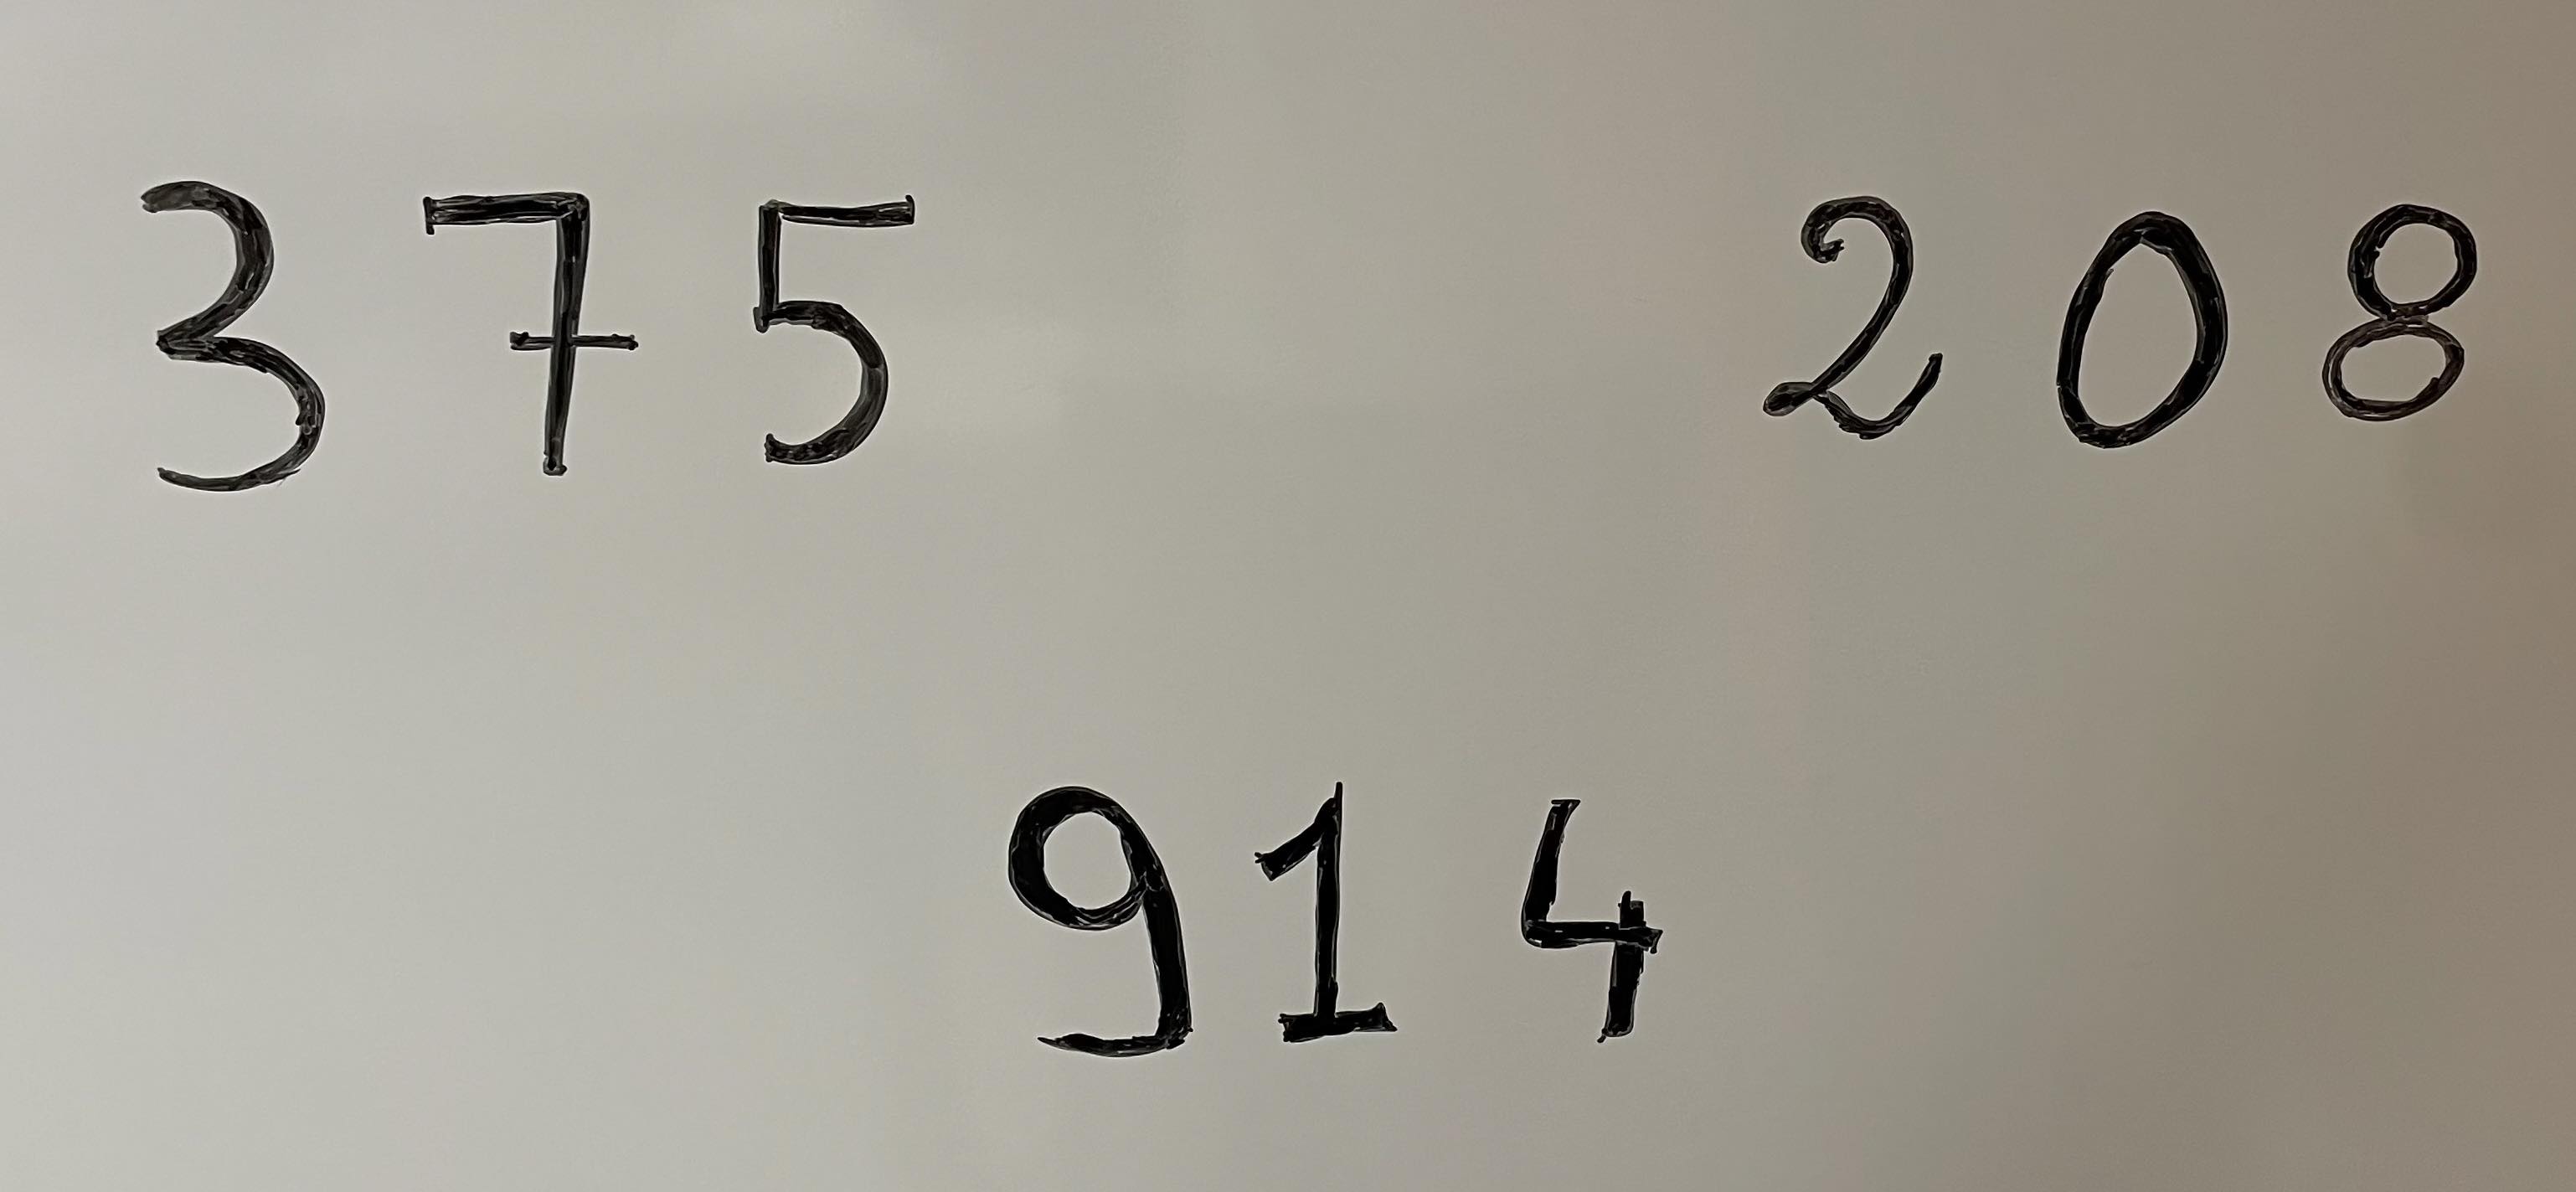 375 208
914